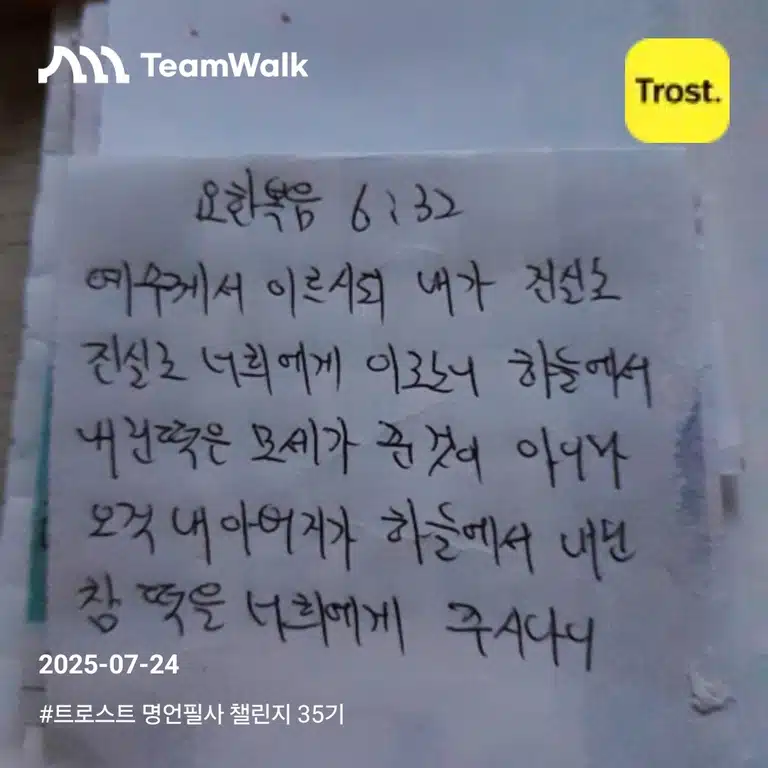 TeamWalk
Trost.
요한복음 6:32
예수께서 이르시되 내가 진실로
진실로 너희에게 이르노니 하늘에서
내린떡은 모세가 준것이 아니라
오직 내아버지가 하늘에서 내린
참 떡을 너희에게 주시나니
2025-07-24
#트로스트 명언필사 챌린지 35기